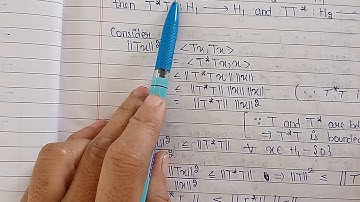 then T*T : H₁ → H₁ and TT* : H₂
Consider
||Tx||² = <Tx, Tx>
= <T*Tx, x>
≤ ||T*Tx|| ||x||
≤ ||T*T|| ||x|| ||x|| (∵ T*T i
= ||T*T|| ||x||²
[∵ T and T* are bo
⇒ T*T is bounde
||² ≤ ||T*T|| ∀ x ∈ H₁ - {0}]
||x||²
||Tx||² ≤ ||T*T|| ⇒ ||T||² ≤ ||T
||x||²